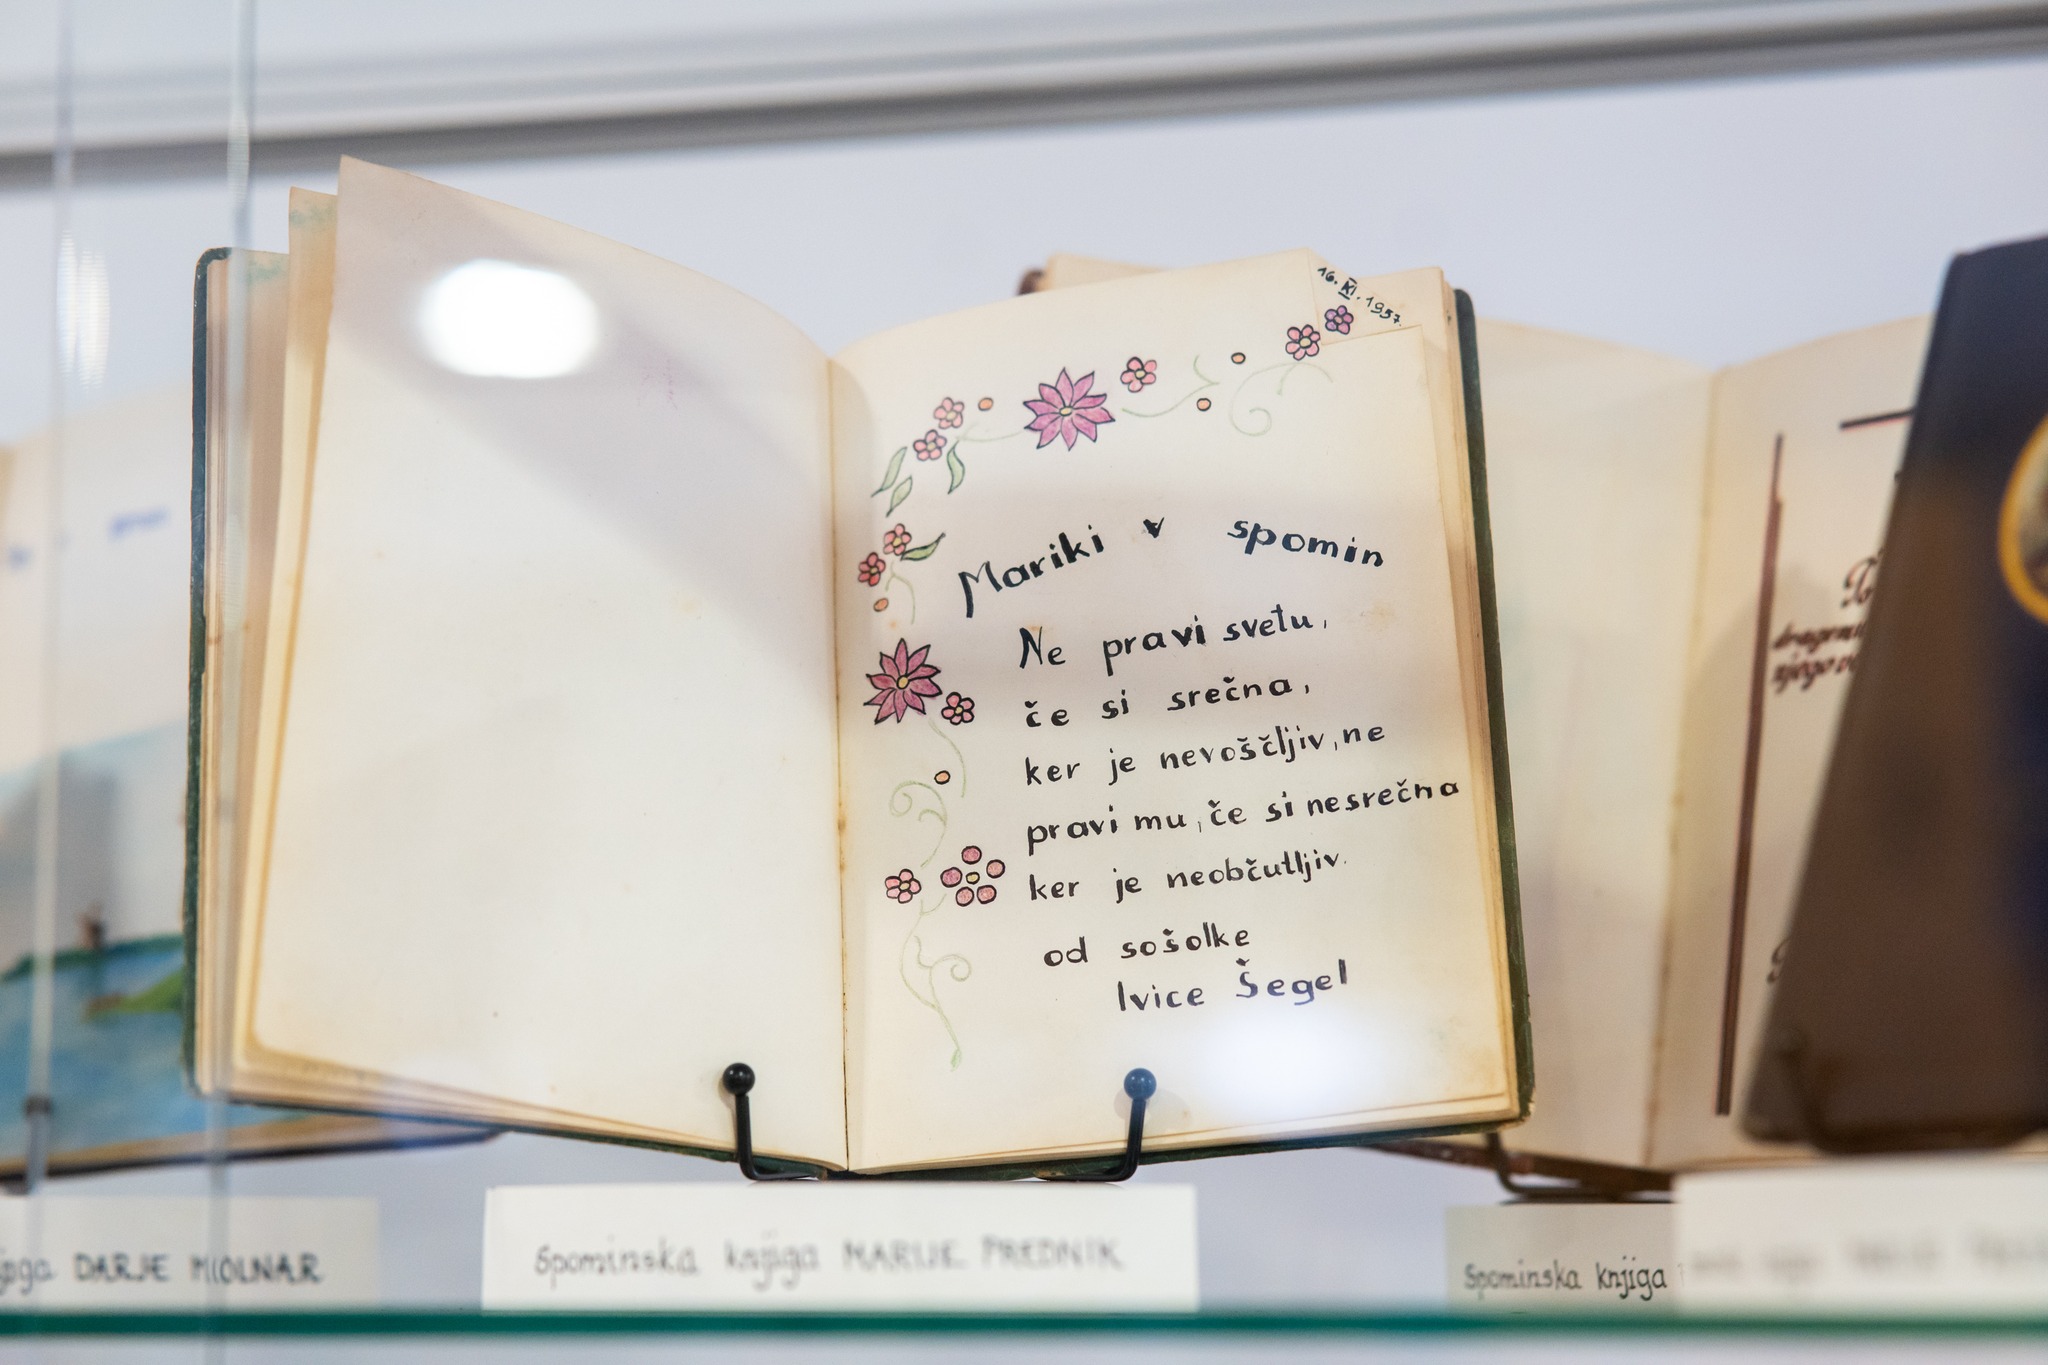 16. XI. 1957.
Mariki v spomin
Ne pravi svetu,
če si srečna,
ker je nevoščljiv, ne
pravi mu, če si nesrečna
ker je neobčutljiv.
od sošolke
Ivice Šegel
DARJE MIOLNAR
Spominska knjiga MARIJE PREDNIK
Spominska knjiga